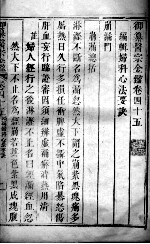 御纂醫宗金鑑卷四十五
編輯婦科心法要訣
崩漏門
崩漏總括
淋瀝不斷名為漏忽然大下謂之崩紫黑塊痛多
屬熱日久行多損任衝脾虛不攝中氣陷暴怒傷
肝血妄行臨證審因須細辨虛補瘀消熱用清
註婦人經行之後淋瀝不止名曰經漏經血忽
然大下不止名為經崩
紫黑成塊腹